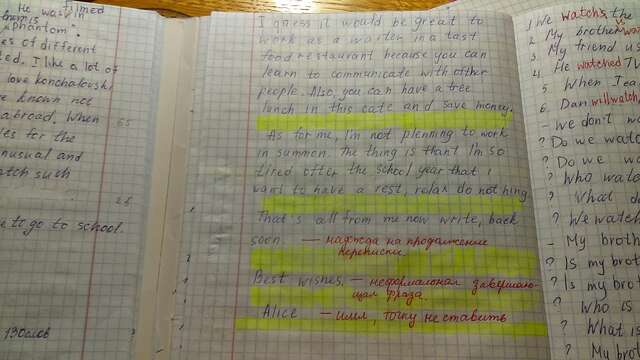 filmed
He was in
"Phantom".
es of different
ed. I like a lot of
love konchalovski
e known not
abroad. When
es for the
unusual and
atch such
e to go to school.
130слов
65
26
I guess it would be great to
work as a waiter in a fast
food restaurant because you can
learn to communicate with other
people. Also, you can have a free
lunch in this cafe and save money.
As for me, I'm not plenning to work
in summer. The thing is thant I'm so
tired after the school year that I
want to have a rest, relax do nothing
That's all from me now write, back
soon. — надежда на продолжение
переписки
Best wishes, — неформальная завершаю-
щая фраза
Alice — имя, точку не ставить
1 We watchs the
2 My brother wa
3 My friend us
4 He watched TV
5 When I ea
6. Dan will watch
- We don't wa
? Do we wat
? Do we wa
? Who watc
? What do
? We watch
- My broth
? Is my brot
? Is my brot
? Who is
? What is
? My bro